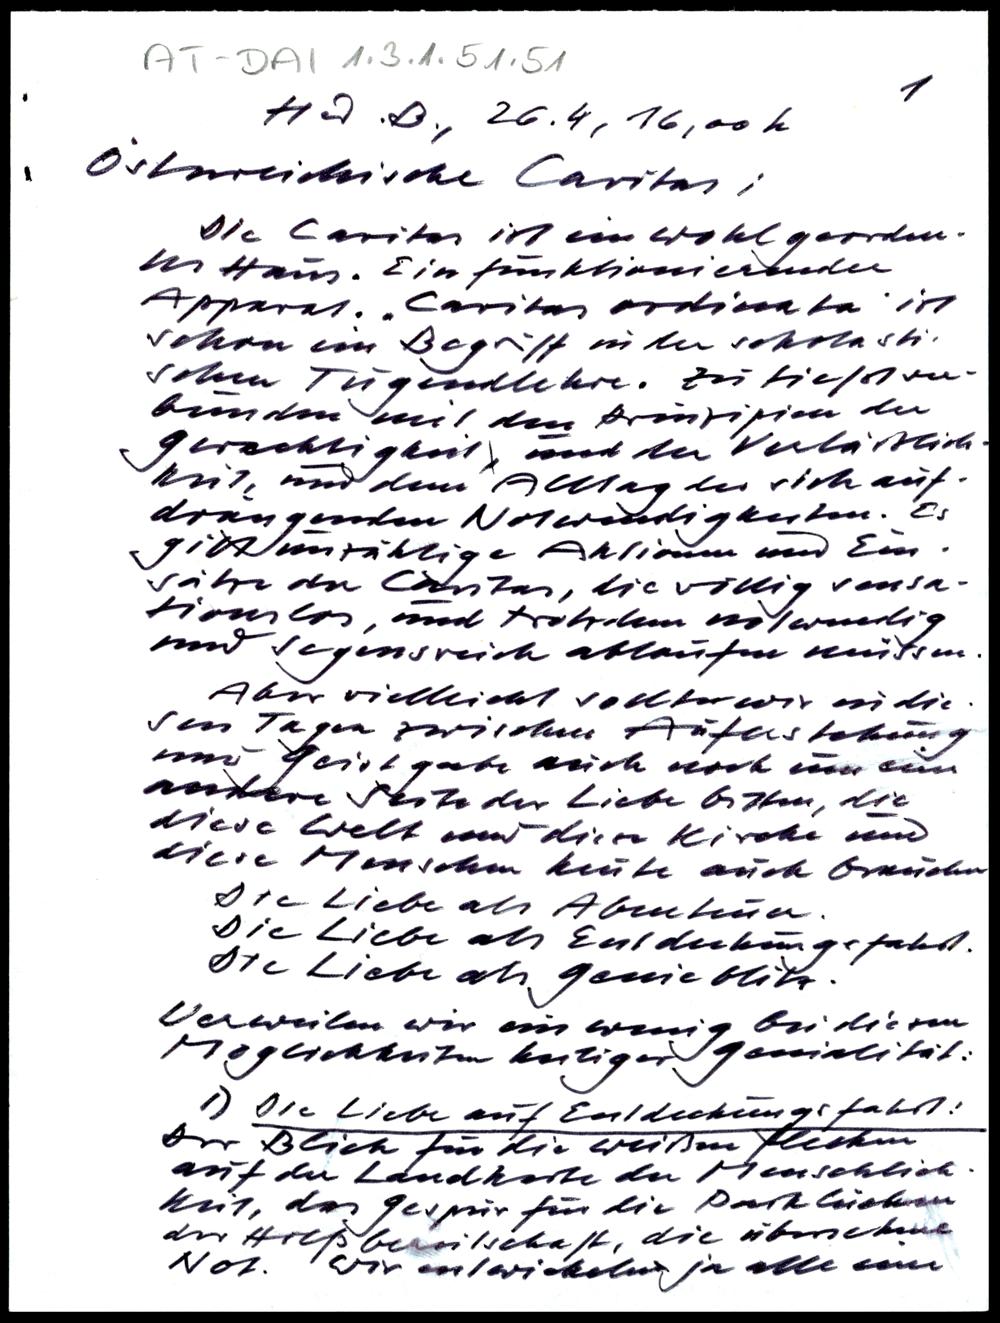 AT-DAI 1.3.1.51.51
1
26.4, 16,00 h
Österreichische Caritas:
Die Caritas ist ein wohl geordne-
tes Haus. Ein funktionierender
Apparat. „Caritas ordinata" ist
schon ein Begriff in der scholasti-
schen Tugendlehre. Zutiefst ver-
bunden mit den Prinzipien der
Gerechtigkeit, und der Verläßlich-
keit, und dem Alltag der sich auf-
drängenden Notwendigkeiten. Es
gibt unzählige Aktionen und Ein-
sätze der Caritas, die völlig sensa-
tionslos, und trotzdem notwendig
und segensreich ablaufen müssen.
Aber vielleicht sollten wir in die-
sen Tagen zwischen Auferstehung
und Geistgabe auch noch um eine
andere Seite der Liebe bitten, die
diese Welt und diese Kirche und
diese Menschen heute auch brauchen
Die Liebe als Abenteuer.
Die Liebe als Entdeckungsfahrt.
Die Liebe als Genieblitz.
Verweilen wir ein wenig bei diesen
Möglichkeiten heiliger Genialität:
1) Die Liebe auf Entdeckungsfahrt:
Der Blick für die weißen Flecken
auf der Landkarte der Menschlich-
keit, das Gespür für die
der Hilfsbereitschaft, die übersehene
Not. Wir entwickeln ja alle eine